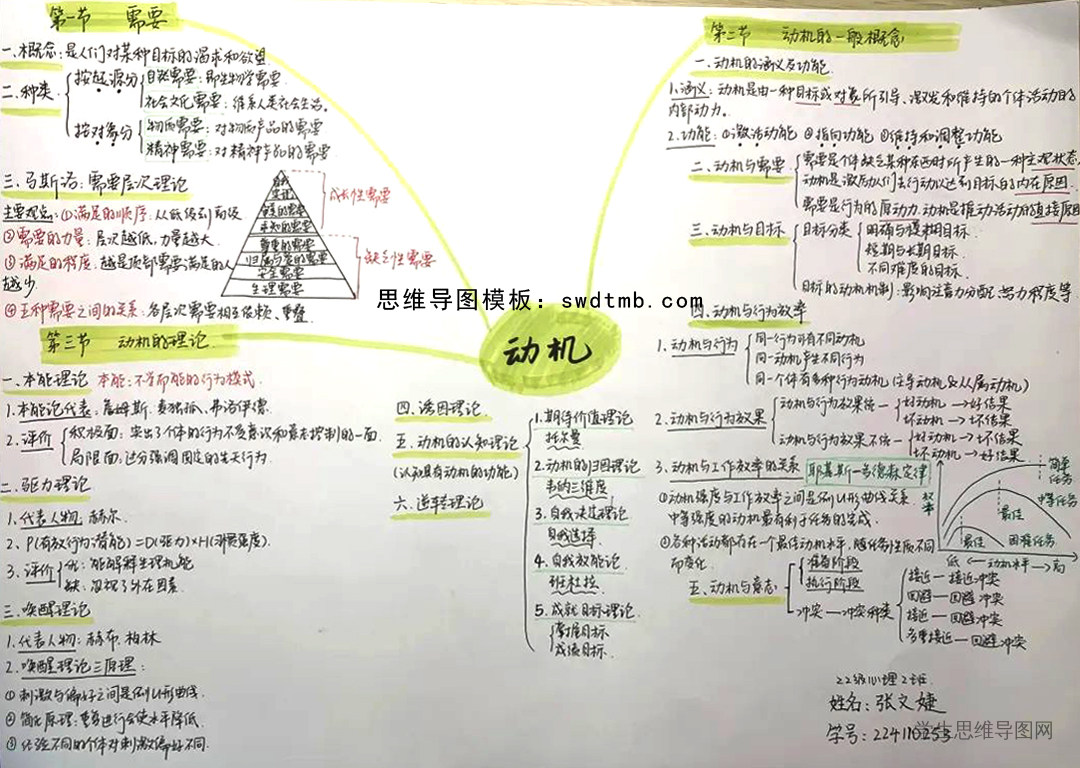 第一节 需要
一、概念：是人们对某种目标的渴求和欲望.
二、种类
按起源分
自然需要：即生物学需要.
社会文化需要：维系人类社会生活。
按对象分
物质需要：对物质产品的需要
精神需要：对精神产品的需要.
三、马斯洛：需要层次理论
主要观点：①满足的顺序：从低级到高级
②需要的力量：层次越低，力量越大.
③满足的程度：越是顶部需要满足的人
越少.
④五种需要之间的关系：各层次需要相互依赖、重叠.
尊重的需要
归属与爱的需要
安全需要
生理需要
成长性需要
缺乏性需要
思维导图模板：swdtmb.com
动机
第二节 动机的一般概念
一、动机的涵义及功能.
1.涵义：动机是由一种目标或对象所引导、激发和维持的个体活动的
内部动力.
2.功能：①激活动能 ②指向功能 ③维持和调整功能
二、动机与需要
需要是个体缺乏某种东西时所产生的一种主观状态，
动机是激励人们去行动以达到目标的内在原因.
需要是行为的原动力.动机是推动活动的直接原因
三、动机与目标
目标分类
明确与模糊目标.
短期与长期目标.
不同难度的目标.
目标的动机机制：影响注意力分配、努力程度等
四、动机与行为效率
1.动机与行为
同一行为可有不同动机
同一动机产生不同行为
同一个体有多种行为动机（主导动机&从属动机）
2.动机与行为效果
动机与行为效果统一
好动机→好结果
坏动机→坏结果
动机与行为效果不统一
好动机→坏结果
坏动机→好结果
3.动机与工作效率的关系 耶基斯—多德森定律
①动机强度与工作效率之间是倒U形曲线关系.
中等强度的动机最有利于任务的完成.
②各种活动都存在一个最佳动机水平，随任务性质不同
而变化.
效率
简单任务
中等任务
最佳
最佳
困难任务
低←动机水平→高
五、动机与意志
准备阶段
执行阶段
冲突→冲突种类
接近—接近冲突
回避—回避冲突
接近—回避冲突
多重接近—回避冲突
第三节 动机的理论
一、本能理论 本能：不学而能的行为模式.
1.本能论代表：詹姆斯、麦独孤、弗洛伊德.
2.评价
积极面：突出了个体的行为不受意识和意志控制的一面.
局限面：过分强调固定的先天行为.
二、驱力理论
1.代表人物：赫尔.
2、P(有效行为潜能)=D(驱力)×H(习惯强度).
3.评价
优：能解释生理机能
缺：忽视了外在因素.
三、唤醒理论
1.代表人物：赫布、柏林
2.唤醒理论三原理：
①刺激与偏好之间是倒U形曲线.
②简化原理：重复进行会使水平降低.
③经验不同的个体对刺激偏好不同.
四、诱因理论
五、动机的认知理论
（认知具有动机的功能）
六、逆转理论
1.期待价值理论
托尔曼
2.动机的归因理论
韦的三维度
3.自我决定理论
自我选择.
4.自我效能论.
班杜拉
5.成就目标理论.
掌握目标
成绩目标.
22级心理2班
姓名：张文婕
学号：224110253
学生思维导图网